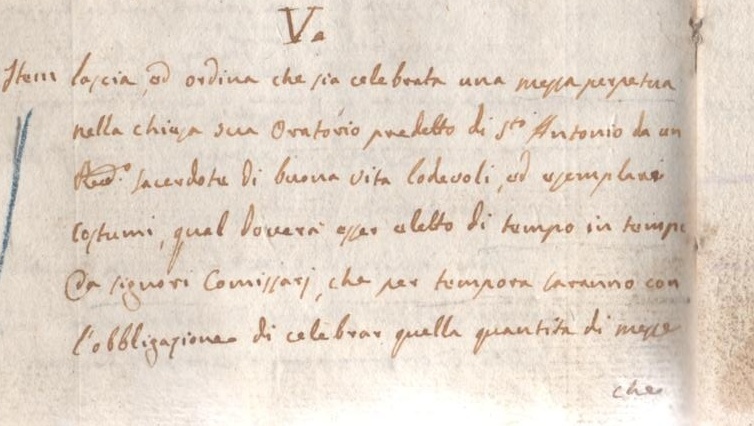 V.
Item lascia, ed ordina che sia celebrata una messa perpetua
nella chiesa sua Oratorio predetto di S.to Antonio da un
Revd.o sacerdote di buona vita lodevoli, ed esemplari
costumi, qual doverà esser eletto di tempo in tempo
Da signori Comissarj, che per tempora saranno con
l'obbligazione di celebrar quella quantita di messe
che